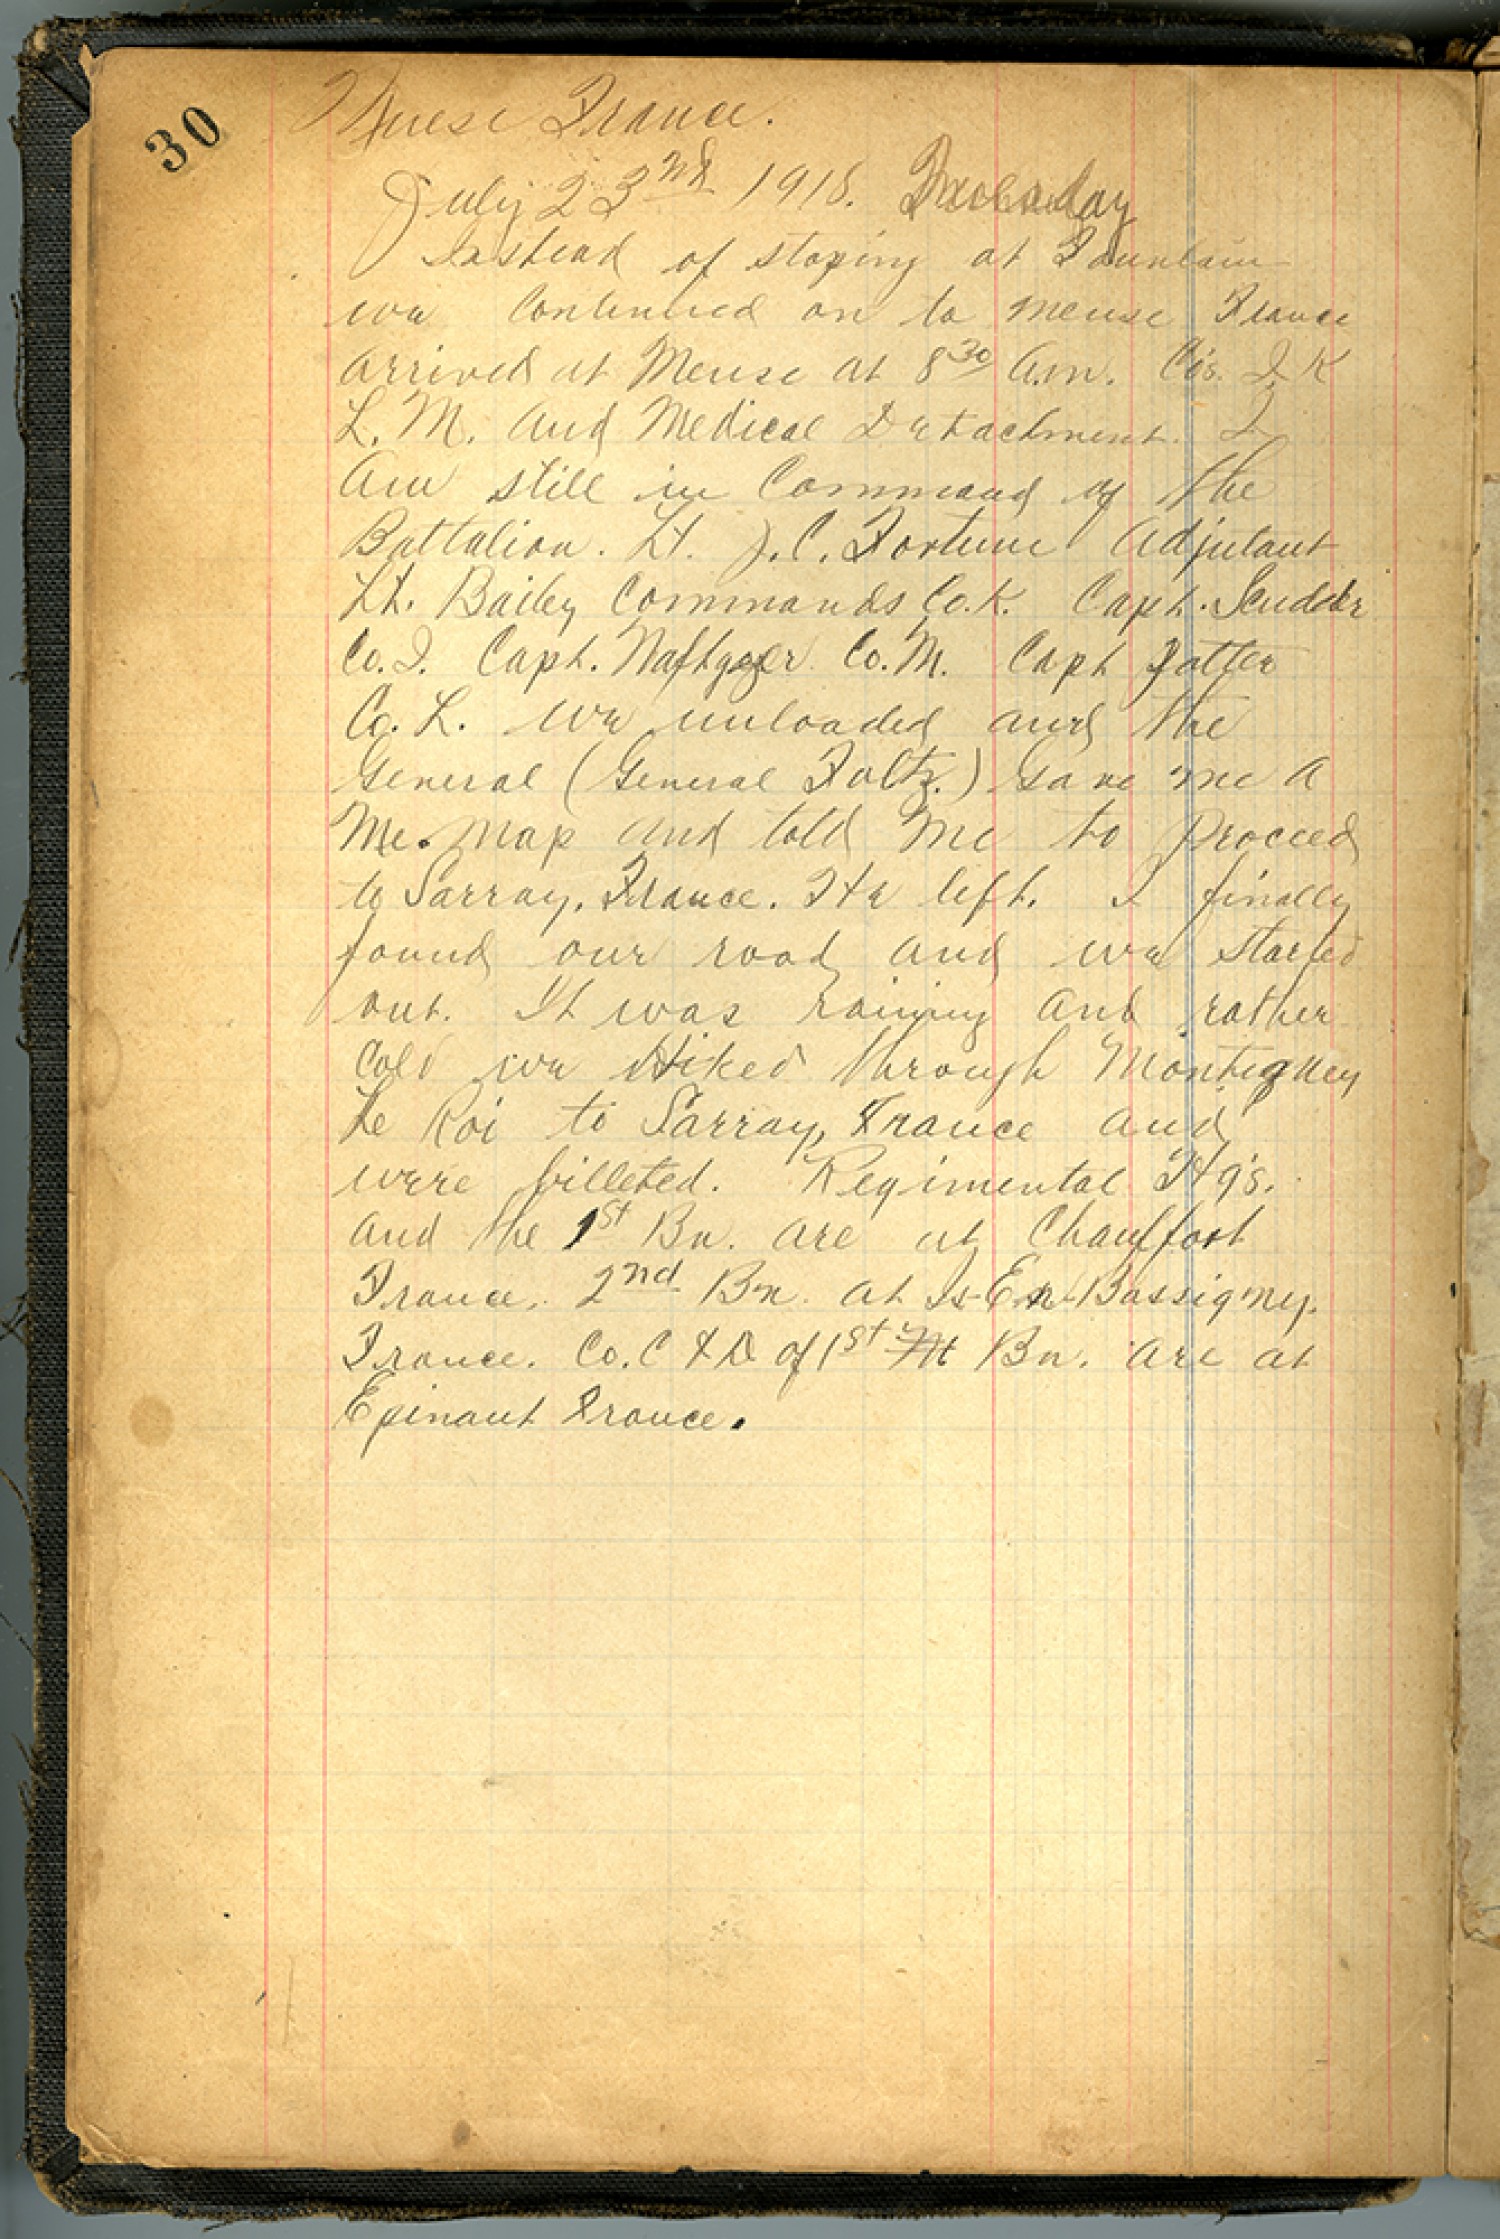 30
Meuse France.
July 23nd 1918. Tuesday
Instead of stoping at Fountain
we continued on to Meuse France
arrived at Meuse at 8 30 A.m. Co's. I K
L. M. and Medical Detachment. I
Am still in Command of the
Battalion. Lt. J. C. Fortune Adjutant
Lt. Bailey Commands Co. K. Capt. Scudder
Co. I. Capt. Naftzger Co. M. Capt
Co. L. we unloaded and the
General (General Foltz.) Gave me A
Me. Map and told Me to Proceed
to Sarray, France. He left. I finally
found our road and we started
out. It was raining and rather
Cold we Hiked through Montigney
Le Roi to Sarray, France and
were billeted. Regimental Hq's.
and the 1st Bn. are at Chauffort
France. 2nd Bn. at Is-En-Bassigney.
France. Co. C & D of 1st Bn. are at
Epinant France.